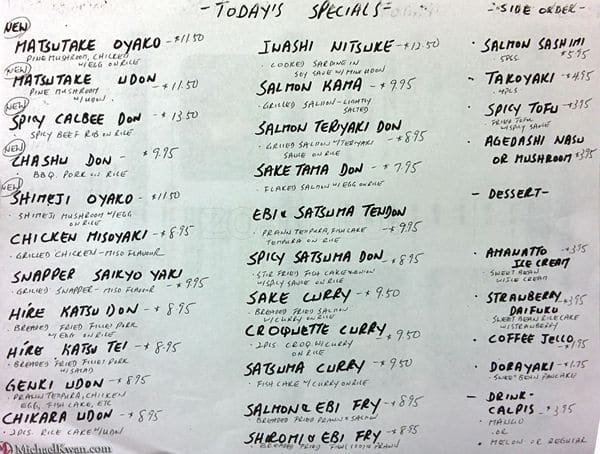 - TODAY'S SPECIALS -
NEW
MATSUTAKE OYAKO - $11.50
PINE MUSHROOM, CHICKEN
W/ EGG ON RICE
NEW
MATSUTAKE UDON - $11.50
PINE MUSHROOM
W/ UDON
NEW
SPICY CALBEE DON - $13.50
SPICY BEEF RIB ON RICE
NEW
CHASHU DON - $9.95
B.B.Q. PORK ON RICE
NEW
SHIMEJI OYAKO - $11.50
SHIMEJI MUSHROOM W/ EGG
ON RICE
CHICKEN MISOYAKI - $8.95
GRILLED CHICKEN - MISO FLAVOUR
SNAPPER SAIKYO YAKI - $9.95
GRILLED SNAPPER - MISO FLAVOUR
HIRE KATSU DON - $8.95
BREADED FRIED FILLET PORK
W/ EGG ON RICE
HIRE KATSU TEI - $8.95
BREADED FRIED FILLET PORK
W/ SALAD
GENKI UDON - $8.95
PRAWN TEMPURA, CHICKEN
EGG, FISH CAKE, ETC
CHIKARA UDON - $8.95
2PCS. RICE CAKE W/ UDON
IWASHI NITSUKE - $12.50
COOKED SARDINE IN
SOY SAUCE W/ MINI UDON
SALMON KAMA - $9.95
GRILLED SALMON - LIGHTLY
SALTED
SALMON TERIYAKI DON - $8.95
GRILLED SALMON W/ TERIYAKI
SAUCE ON RICE
SAKE TAMA DON - $7.95
FLAKED SALMON W/ EGG ON RICE
EBI & SATSUMA TENDON - $9.95
PRAWN TEMPURA, FISH CAKE
TEMPURA ON RICE
SPICY SATSUMA DON - $8.95
STIR FRIED FISH CAKE W/ ONION
W/ SPICY SAUCE ON RICE
SAKE CURRY - $9.50
BREADED FRIED SALMON
W/ CURRY ON RICE
CROQUETTE CURRY - $9.50
2 PCS. CROQ. W/ CURRY
ON RICE
SATSUMA CURRY - $9.50
FISH CAKE W/ CURRY ON RICE
SALMON & EBI FRY - $8.95
BREADED FRIED PRAWN & SALMON
SHIROMI & EBI FRY - $8.95
BREADED FRIED FISH PRAWN
- SIDE ORDER -
SALMON SASHIMI - $5.95
5PCS
TAKOYAKI - $4.95
4PCS
SPICY TOFU - $3.95
FRIED TOFU
W/ SPICY SAUCE
AGEDASHI NASU
OR MUSHROOM $3.95
- DESSERT -
AMANATTO - $3.95
ICE CREAM
SWEET BEAN
W/ ICE CREAM
STRAWBERRY - $3.95
DAIFUKU
SWEET BEAN RICE CAKE
W/ STRAWBERRY
COFFEE JELLO - $1.95
DORAYAKI - $1.75
SWEET BEAN PANCAKE
- DRINK -
CALPIS - $3.95
MANGO
OR
MELON OR REGULAR
MichaelKwan.com